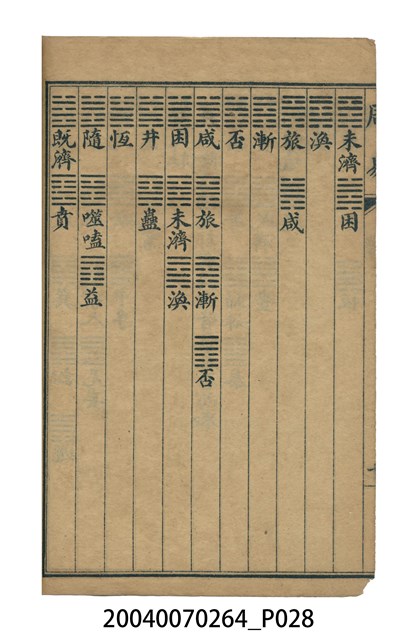 未濟 困
渙
旅 咸
漸
否
咸 旅 漸 否
困 未濟 渙
井 蠱
恆
隨 噬嗑 益
既濟 賁
20040070264_P028